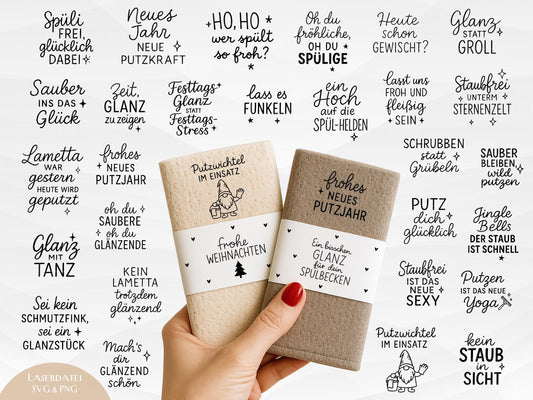 Spüli
FREI,
glücklich
DABEI
Neues
Jahr
NEUE
PUTZKRAFT
HO, HO
wer spült
so froh?
Oh du
fröhliche,
OH DU
SPÜLIGE
Heute
schon
GEWISCHT?
Glanz
STATT
GROLL
Sauber
INS DAS
Glück
Zeit,
GLANZ
zu zeigen
Festtags-
Glanz
STATT
Festtags-
Stress
lass es
FUNKELN
ein
Hoch
auf die
SPÜL-HELDEN
lasst uns
FROH UND
fleißig
SEIN
Staubfrei
UNTERM
STERNENZELT
Lametta
WAR
gestern
HEUTE WIRD
geputzt
frohes
NEUES
PUTZJAHR
oh du
SAUBERE
oh du
GLÄNZENDE
Glanz
MIT
TANZ
KEIN
LAMETTA
trotzdem
glänzend
Sei kein
SCHMUTZFINK,
sei ein
GLANZSTÜCK
Mach's
dir
GLÄNZEND
schön
Putzwichtel
IM EINSATZ
frohe
WEIHNACHTEN
frohes
NEUES
PUTZJAHR
Ein bisschen
GLANZ
für dein
SPÜLBECKEN
SCHRUBBEN
statt
Grübeln
SAUBER
BLEIBEN,
wild
putzen
PUTZ
dich
glücklich
Jingle
Bells
DER STAUB
IST SCHNELL
Staubfrei
IST DAS
NEUE
SEXY
Putzen
IST DAS NEUE
Yoga
Putzwichtel
IM EINSATZ
kein
STAUB
IN
SICHT
LASERDATEI
SVG & PNG